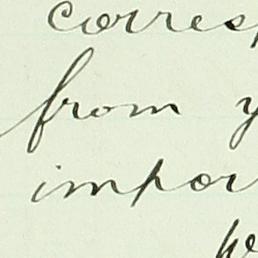 corresp
from y
impor
he